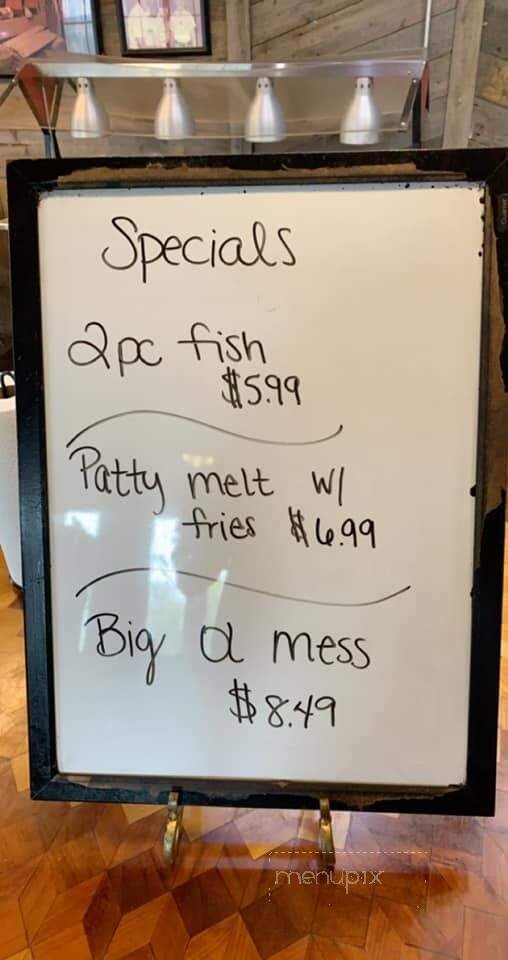 Specials
2pc fish
$5.99
Patty melt w/
fries $6.99
Big Ol mess
$8.49
menupix